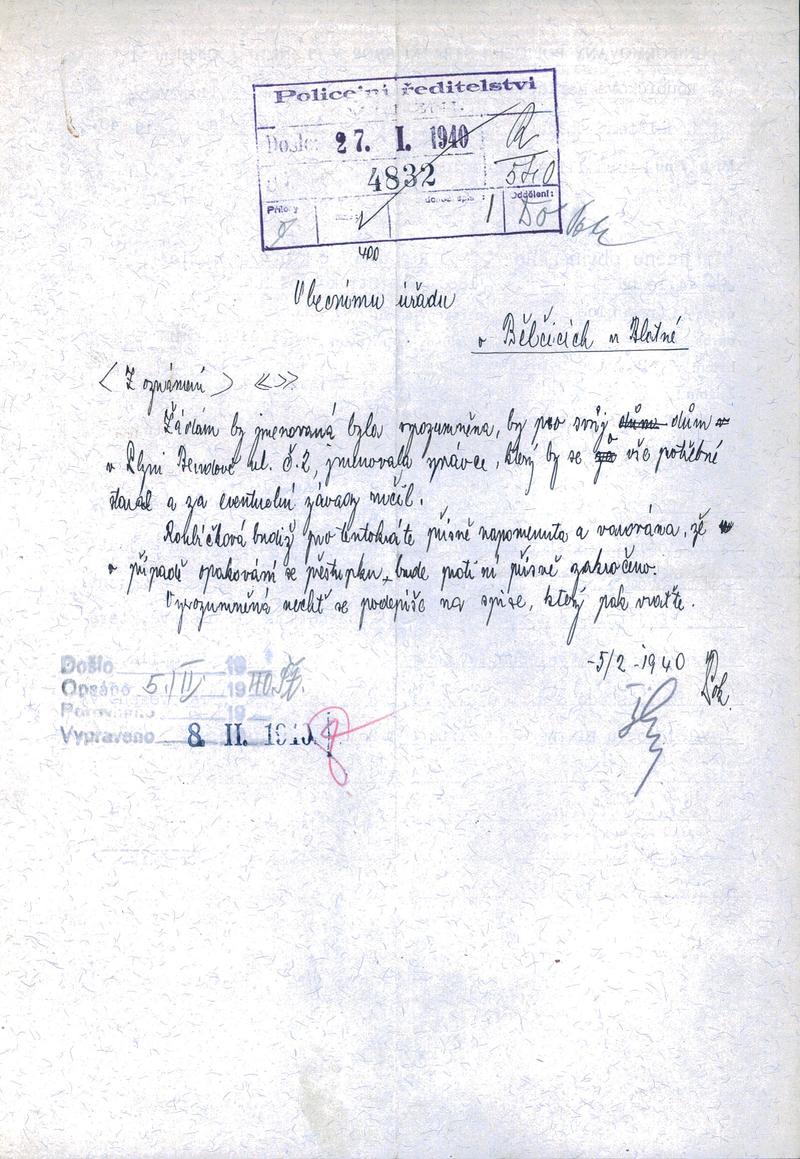 Policejní ředitelství
Došlo: 27. I. 1940
4832
Přílohy
Oddělení:
400
Obecnímu úřadu
v Bělčicích u Blatné
Z oznámení
Žádám by jmenovaná byla vyrozumněna, by pro svůj dům
v Plzni Bendově ul. č. 2, jmenovala správce, který by se vše potřebné
staral a za eventuelní závady ručil.
Roubíčková budiž pro tentokráte přísně napomenuta a varována, že
v případě opakování se přestupku, bude proti ní přísně zakročeno.
Vyrozumněná nechť se podepíše na spise, který pak vraťte.
-5/2 -1940
Došlo 19
Opsáno 5./II 1940
Porovnáno 19
Vypraveno 8. II. 1940